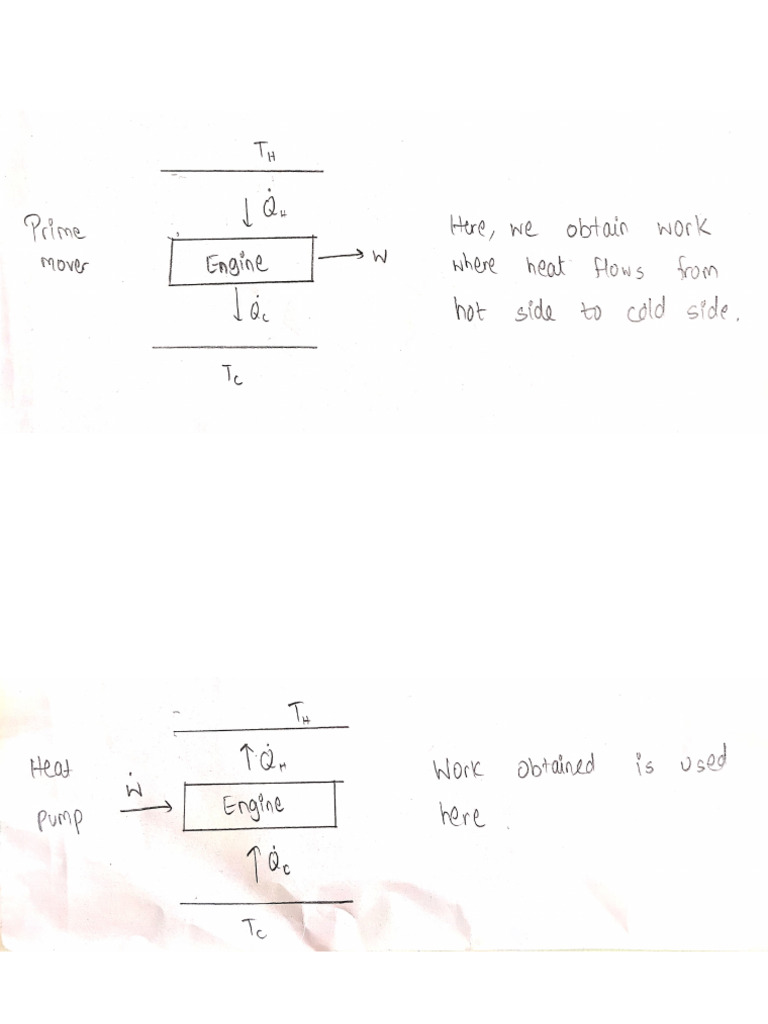 T_H
↓ Q̇_H
Prime
mover
Engine
→ W
↓ Q̇_C
T_C
Here, we obtain work
where heat flows from
hot side to cold side.
T_H
↑ Q̇_H
Heat
pump
Ẇ
Engine
↑ Q̇_C
T_C
Work obtained is used
here.